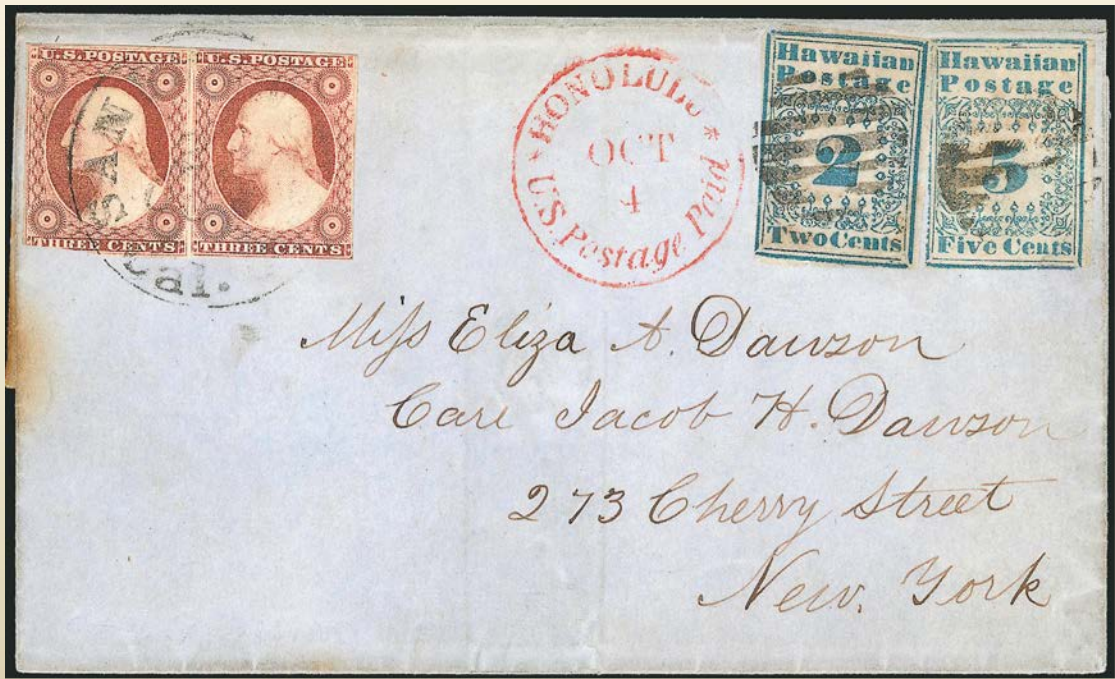 U.S. POSTAGE
THREE CENTS
U.S. POSTAGE
THREE CENTS
SAN
Cal.
HONOLULU
U.S. Postage Paid
OCT
4
Hawaiian
Postage
2
Two Cents
Hawaiian
Postage
5
Five Cents
Miss Eliza A. Dawson
Care Jacob H. Dawson
273 Cherry Street
New. York